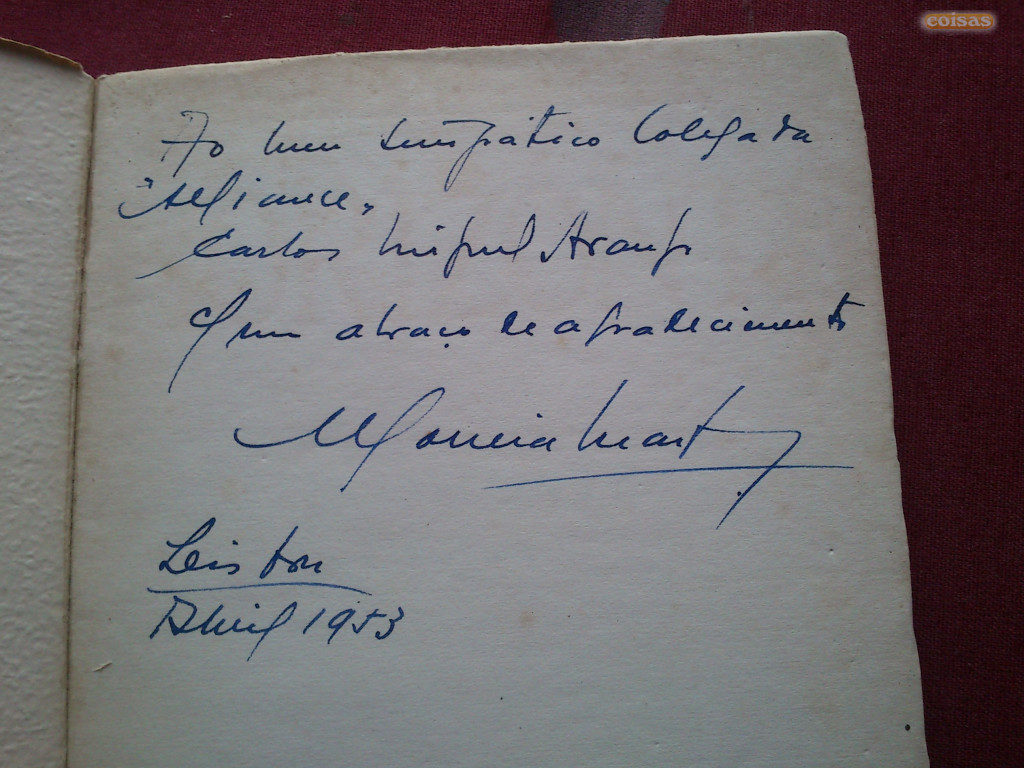 coisas
Ao meu simpático Colega da
"Alliance"
Carlos Miguel Araujo
Com um abraço de agradecimento
Lisboa
Abril 1953